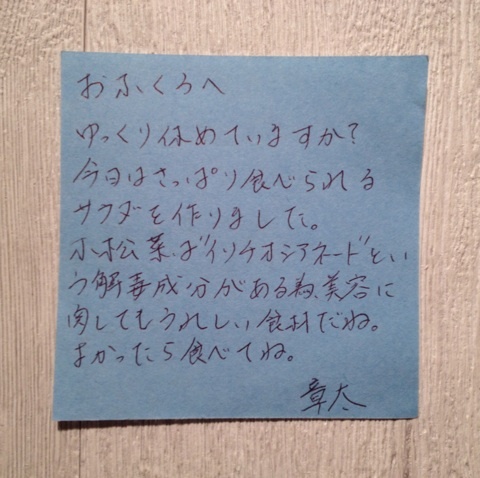 おふくろへ
ゆっくり休めていますか?
今日はさっぱり食べられる
サラダを作りました。
小松菜は"イソチオシアネート"とい
う解毒成分がある為、美容に
関してもうれしい食材だね。
よかったら食べてね。
章太